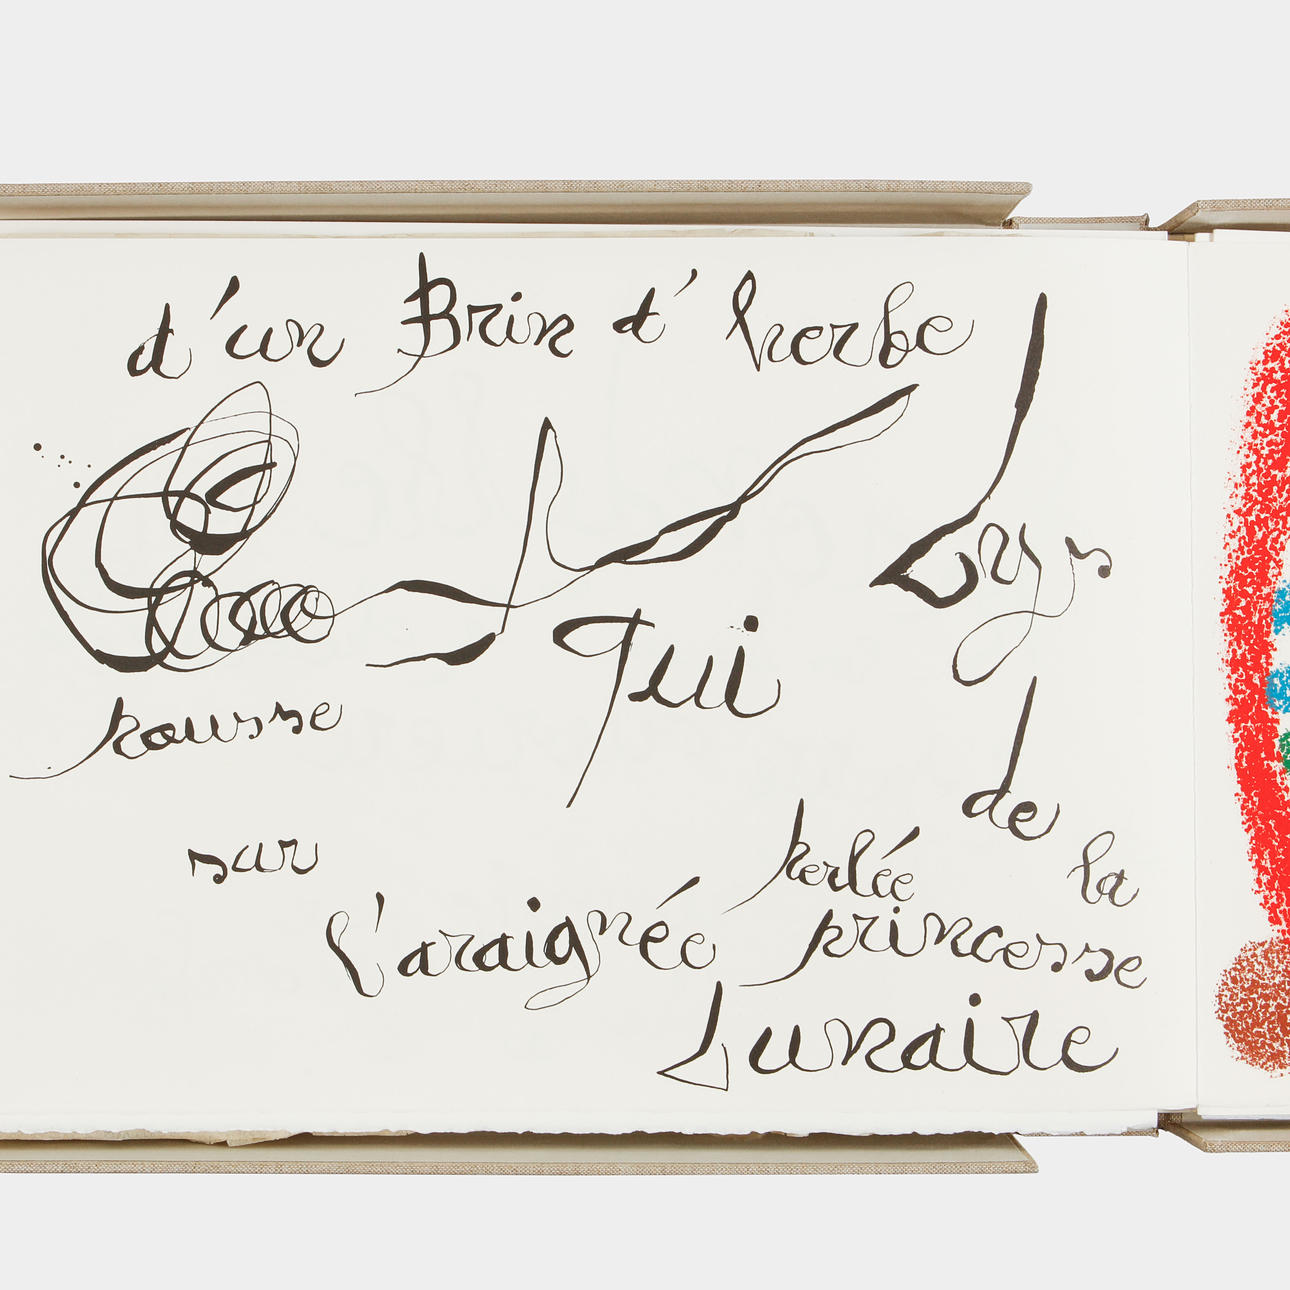 d'un Brin d'herbe
Lys
qui
pousse
sur
l'araignée
perlée
de
la
princesse
Lunaire